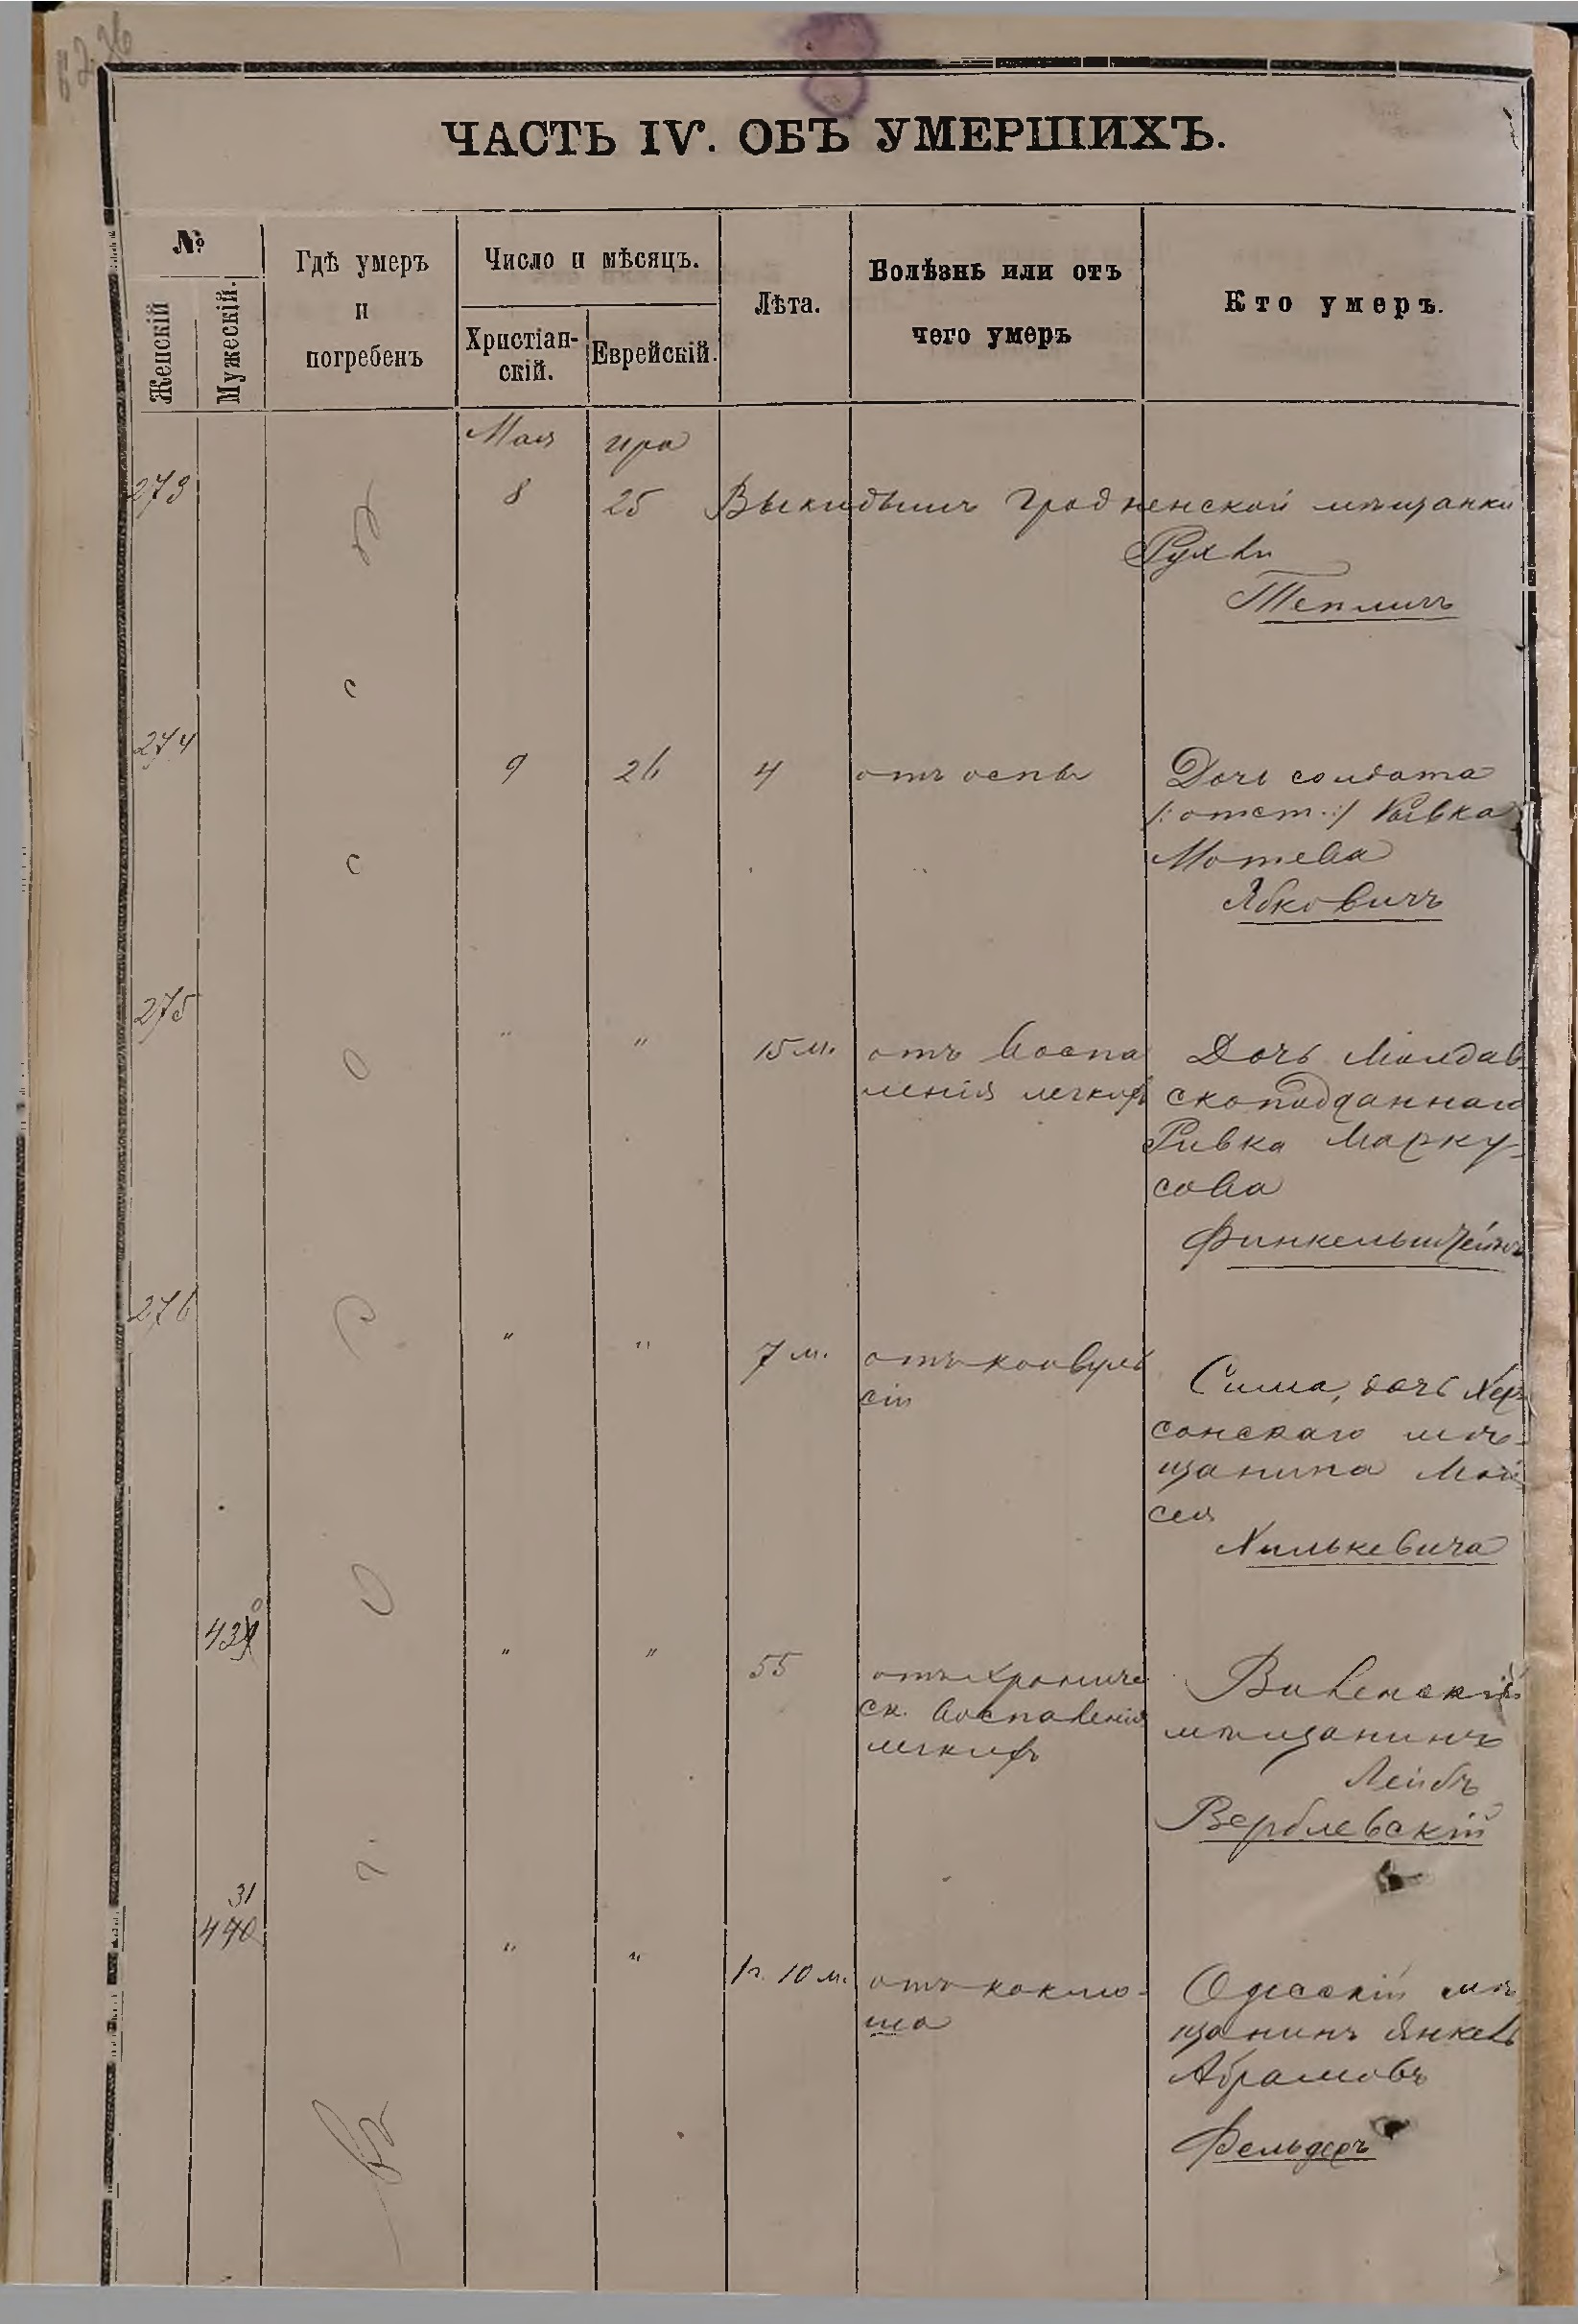 ЧАСТЬ IV. ОБЪ УМЕРШИХЪ.
№
Женскій
Мужескій.
Гдѣ умеръ
и
погребенъ
Число и мѣсяцъ.
Христіан-
скій.
Еврейскій.
Лѣта.
Болѣзнь или отъ
чего умеръ
Кто умеръ.
Мая ира
273 8 25 Выкидышъ Гродненской мѣщанки
Рухли
Теплицъ
274 9 26 4 отъ оспы Дочь солдата
/: отст. :/ Рывка
Мотева
Ябковичъ
275 " " 15 м. отъ воспа
ленія легкихъ
Дочь Молдав
скоподданнаго
Ривка Марку-
сова
Финкельштейнъ
276 " " 7 м. отъ конвуль
сіи
Сима, дочь Хер
сонскаго мѣ-
щанина Мой
сея
Хилькевича
430 " " 55 отъ хрониче
ск. воспаленія
легкихъ
Виленскій
мѣщанинъ
Лейбъ
Верблевскій
31
440 " " 1 г. 10 м. отъ коклю-
ша
Одесскій мѣ
щанинъ Янкель
Абрамовъ
Фельдеръ
Одесса